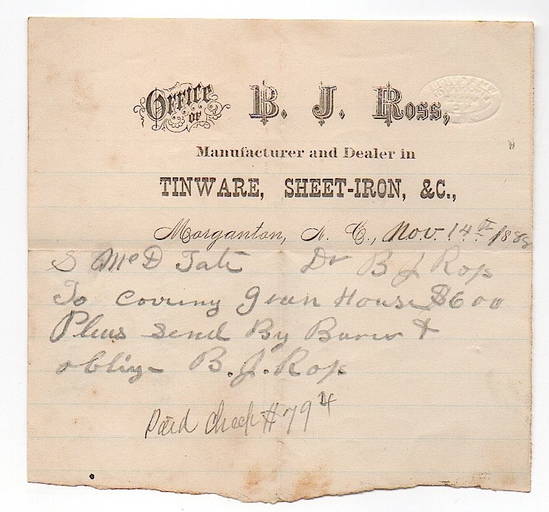 Office of B. J. Ross,
Manufacturer and Dealer in
TINWARE, SHEET-IRON, &C.,
Morganton, N. C., Nov. 14th 1888
S McD Tate Dr B J Ross
To Covering House $6 00
Pleas Send By &
oblige B. J. Ross
Paid Check #79